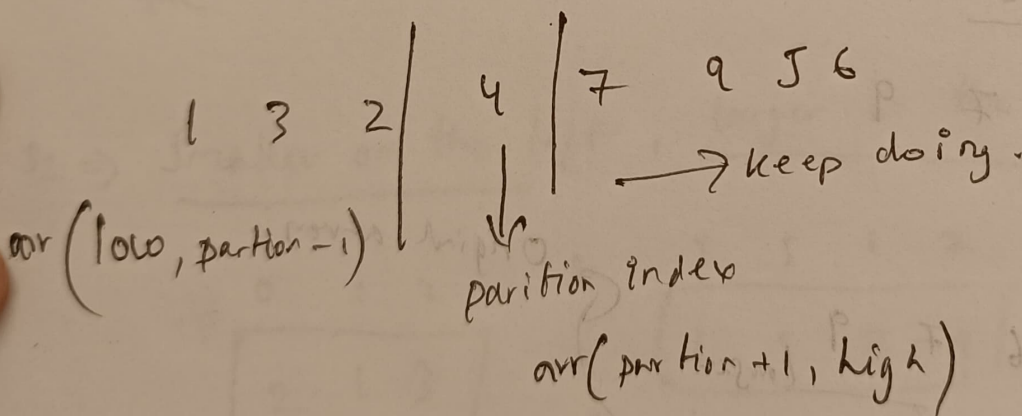 1 3 2 | 4 | 7 9 5 6
→ keep doing.
arr (low, partion - 1)
parition index
arr( partion + 1, high)